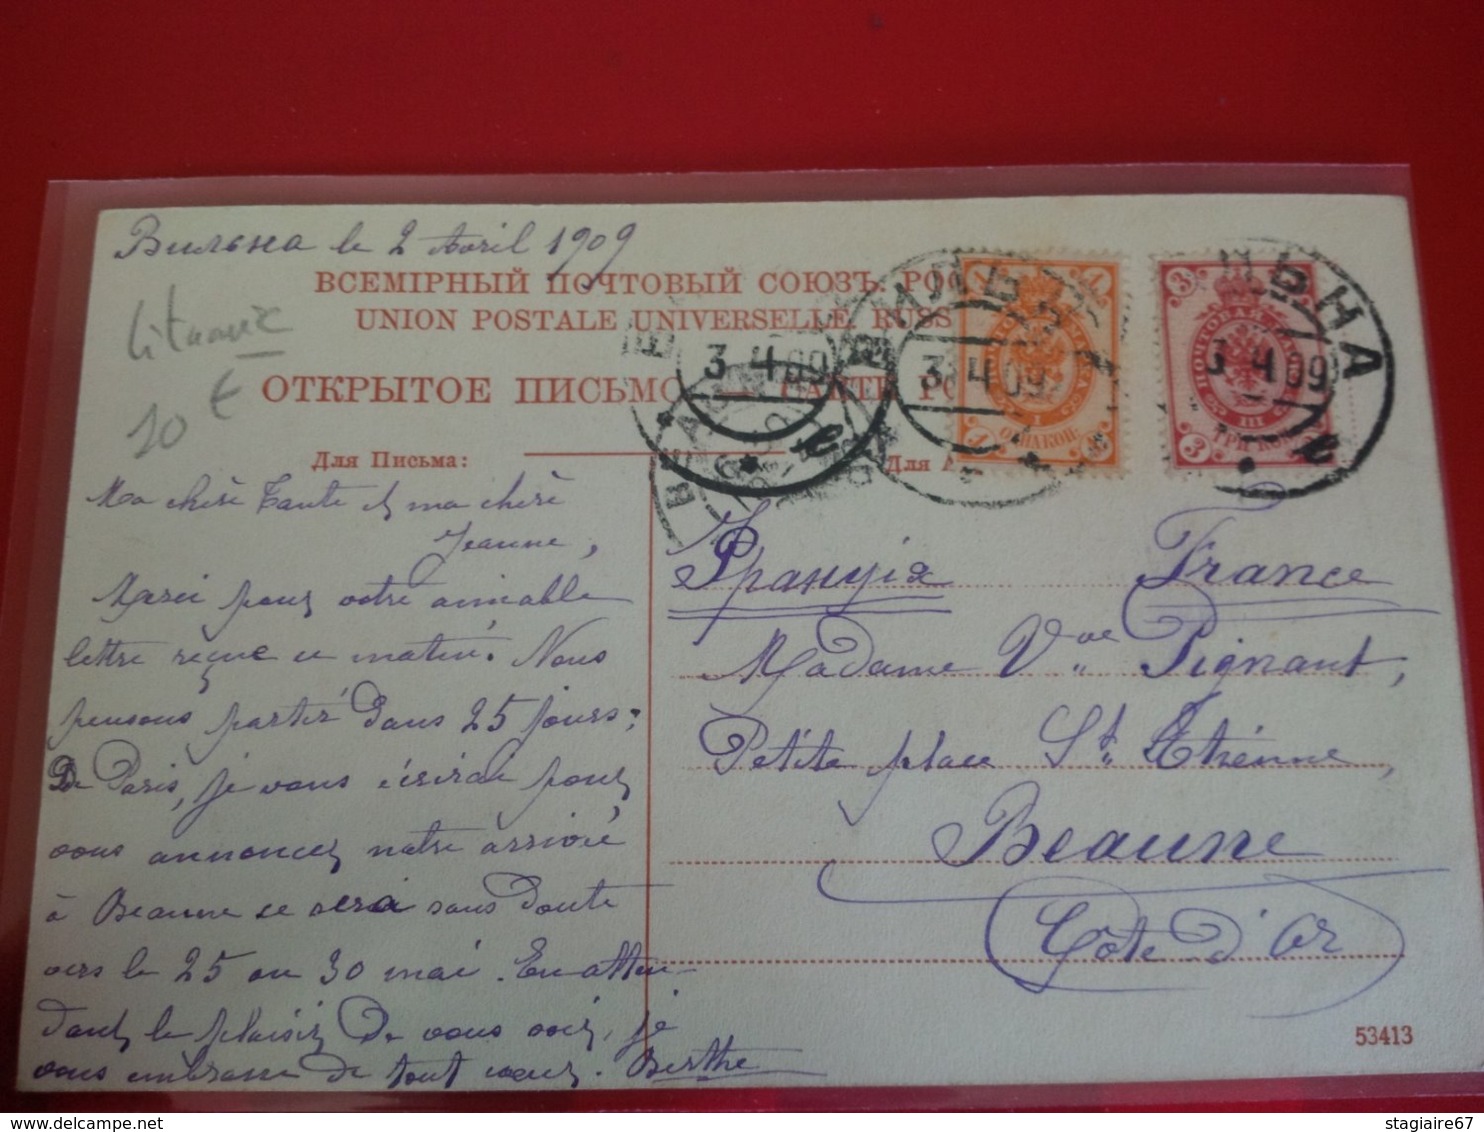 Вильна le 2 Avril 1909
ВСЕМІРНЫЙ ПОЧТОВЫЙ СОЮЗЪ. РОС
UNION POSTALE UNIVERSELLE RUSS
ОТКРЫТОЕ ПИСЬМО
Lituanie
10 €
ВИЛЬНА
3 4 09
ВИЛЬНА
3 4 09
ЛЬНА
3 4 09
Для Письма:
Для А
Ma chère Tante et ma chère
Jeanne,
Merci pour votre aimable
lettre reçue ce matin. Nous
pensons partir dans 25 jours;
De Paris, je vous écrirai pour
vous annoncer notre arrivée
à Beaune ce sera sans doute
vers le 25 ou 30 mai. En atten-
dant le plaisir de vous voir, je
vous embrasse de tout cœur. Berthe
Франція France
Madame Vve Pignant,
Petite place St. Etienne,
Beaune
Côte d'Or
53413
stagiaire67